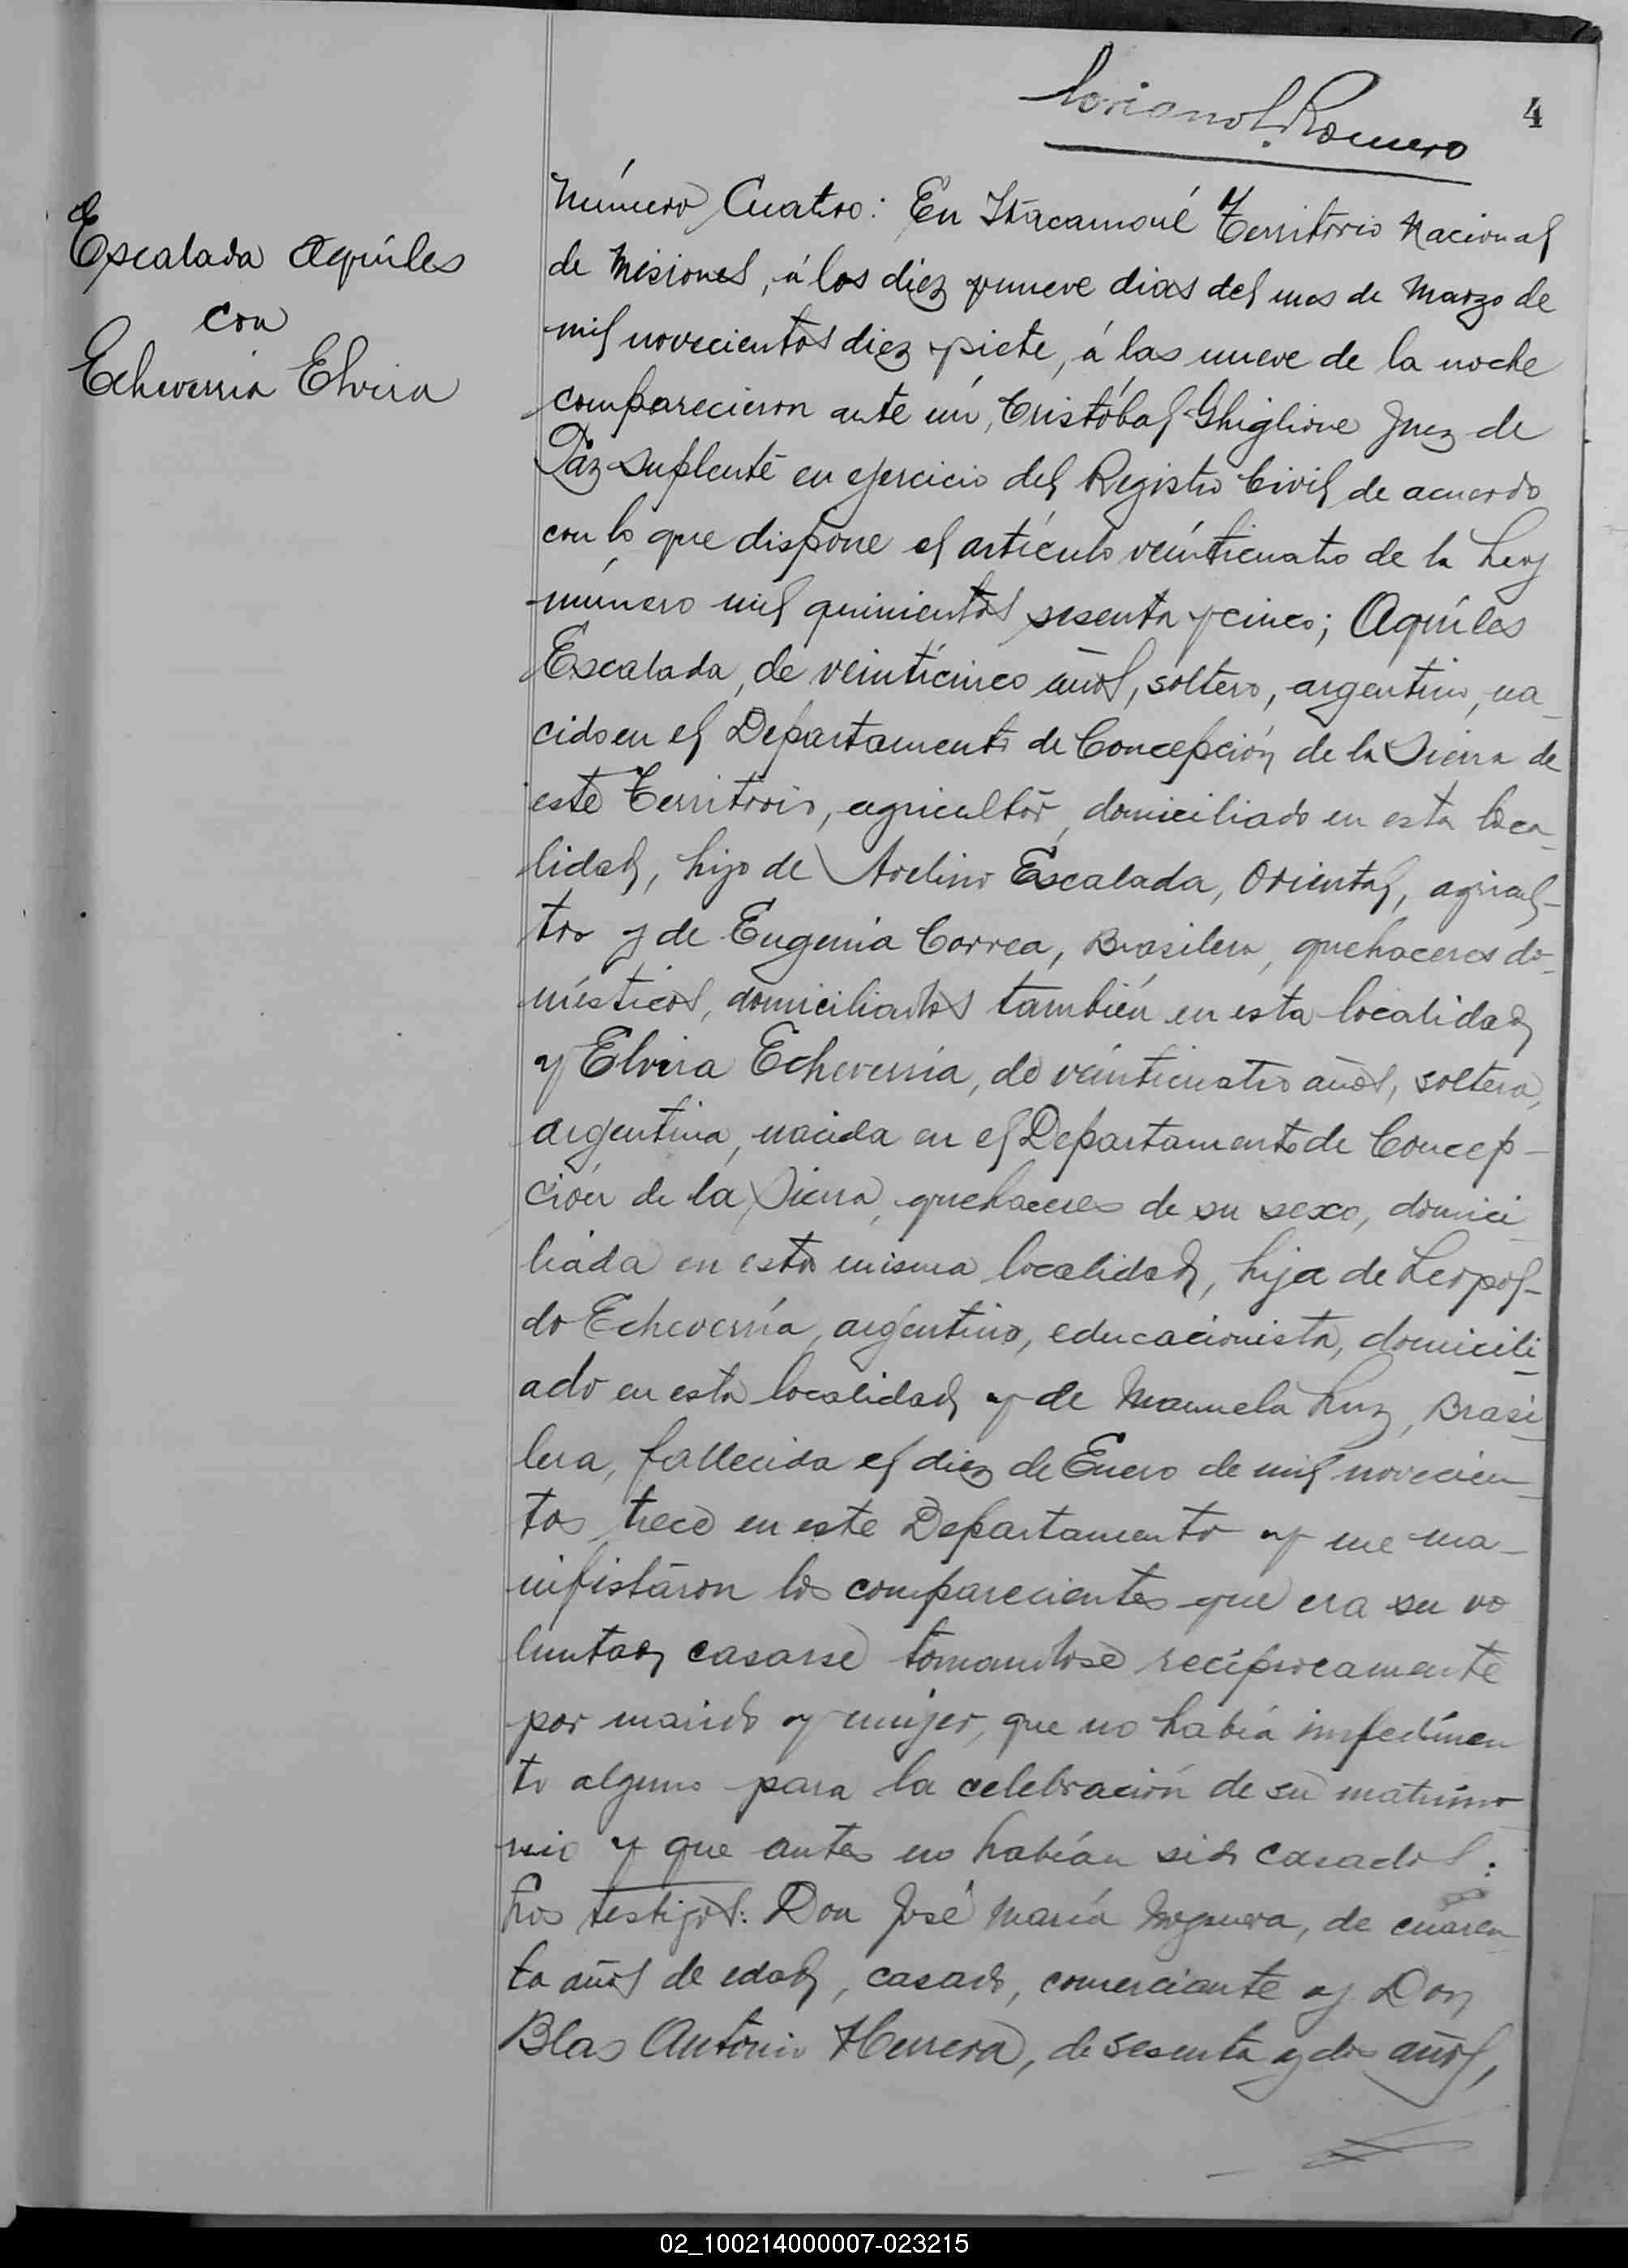 Soriano L. Romero
4
Escalada Aquiles
con
Echeverria Elvira
Número Cuatro: En Itacaruaré Territorio Nacional
de Misiones, á los diez y nueve dias del mes de Marzo de
mil novecientos diez y siete, á las nueve de la noche
comparecieron ante mi, Cristóbal Ghiglione Juez de
Paz Suplente en ejercicio del Registro Civil de acuerdo
con lo que dispone el artículo veinticuatro de la Ley
número mil quinientos sesenta y cinco; Aquiles
Escalada, de veinticinco años, soltero, argentino, na_
cido en el Departamento de Concepción de la Sierra de
este Territorio, agricultor, domiciliado en esta loca_
lidad, hijo de Avelino Escalada, Oriental, agricul_
tor y de Eugenia Correa, Brasilera, quehaceres do_
mésticos, domiciliados también en esta localidad
y Elvira Echeverria, de veinticuatro años, soltera,
argentina, nacida en el Departamento de Concep_
ción de la Sierra, quehaceres de su sexo, domici_
liada en esta misma localidad, hija de Leopol_
do Echeverría, argentino, educacionista, domicili_
ado en esta localidad y de Manuela Luz, Brasi_
lera, fallecida el diez de Enero de mil novecien_
tos trece en este Departamento y me ma_
nifistaron los comparecientes que era su vo
luntad casarse tomandose recíprocamente
por marido y mujer, que no había impedimen
to alguno para la celebración de su matrimo_
nio y que antes no habían sido casados:
Los testigos: Don José María Noguera, de cuaren_
ta años de edad, casado, comerciante y Don
Blas Antonio Herrera, de sesenta y dos años,
02_100214000007-023215